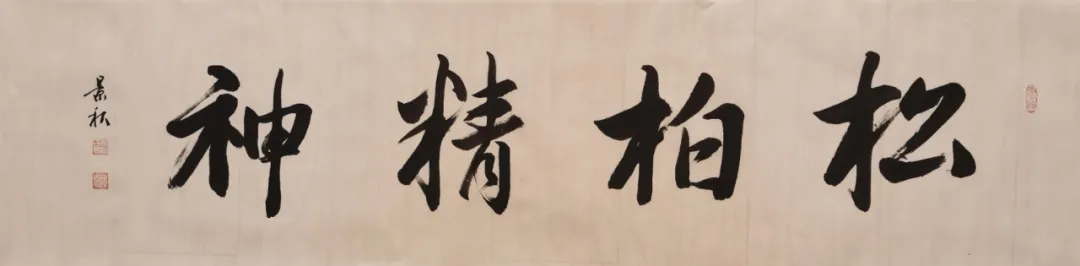 松柏精神
景秋